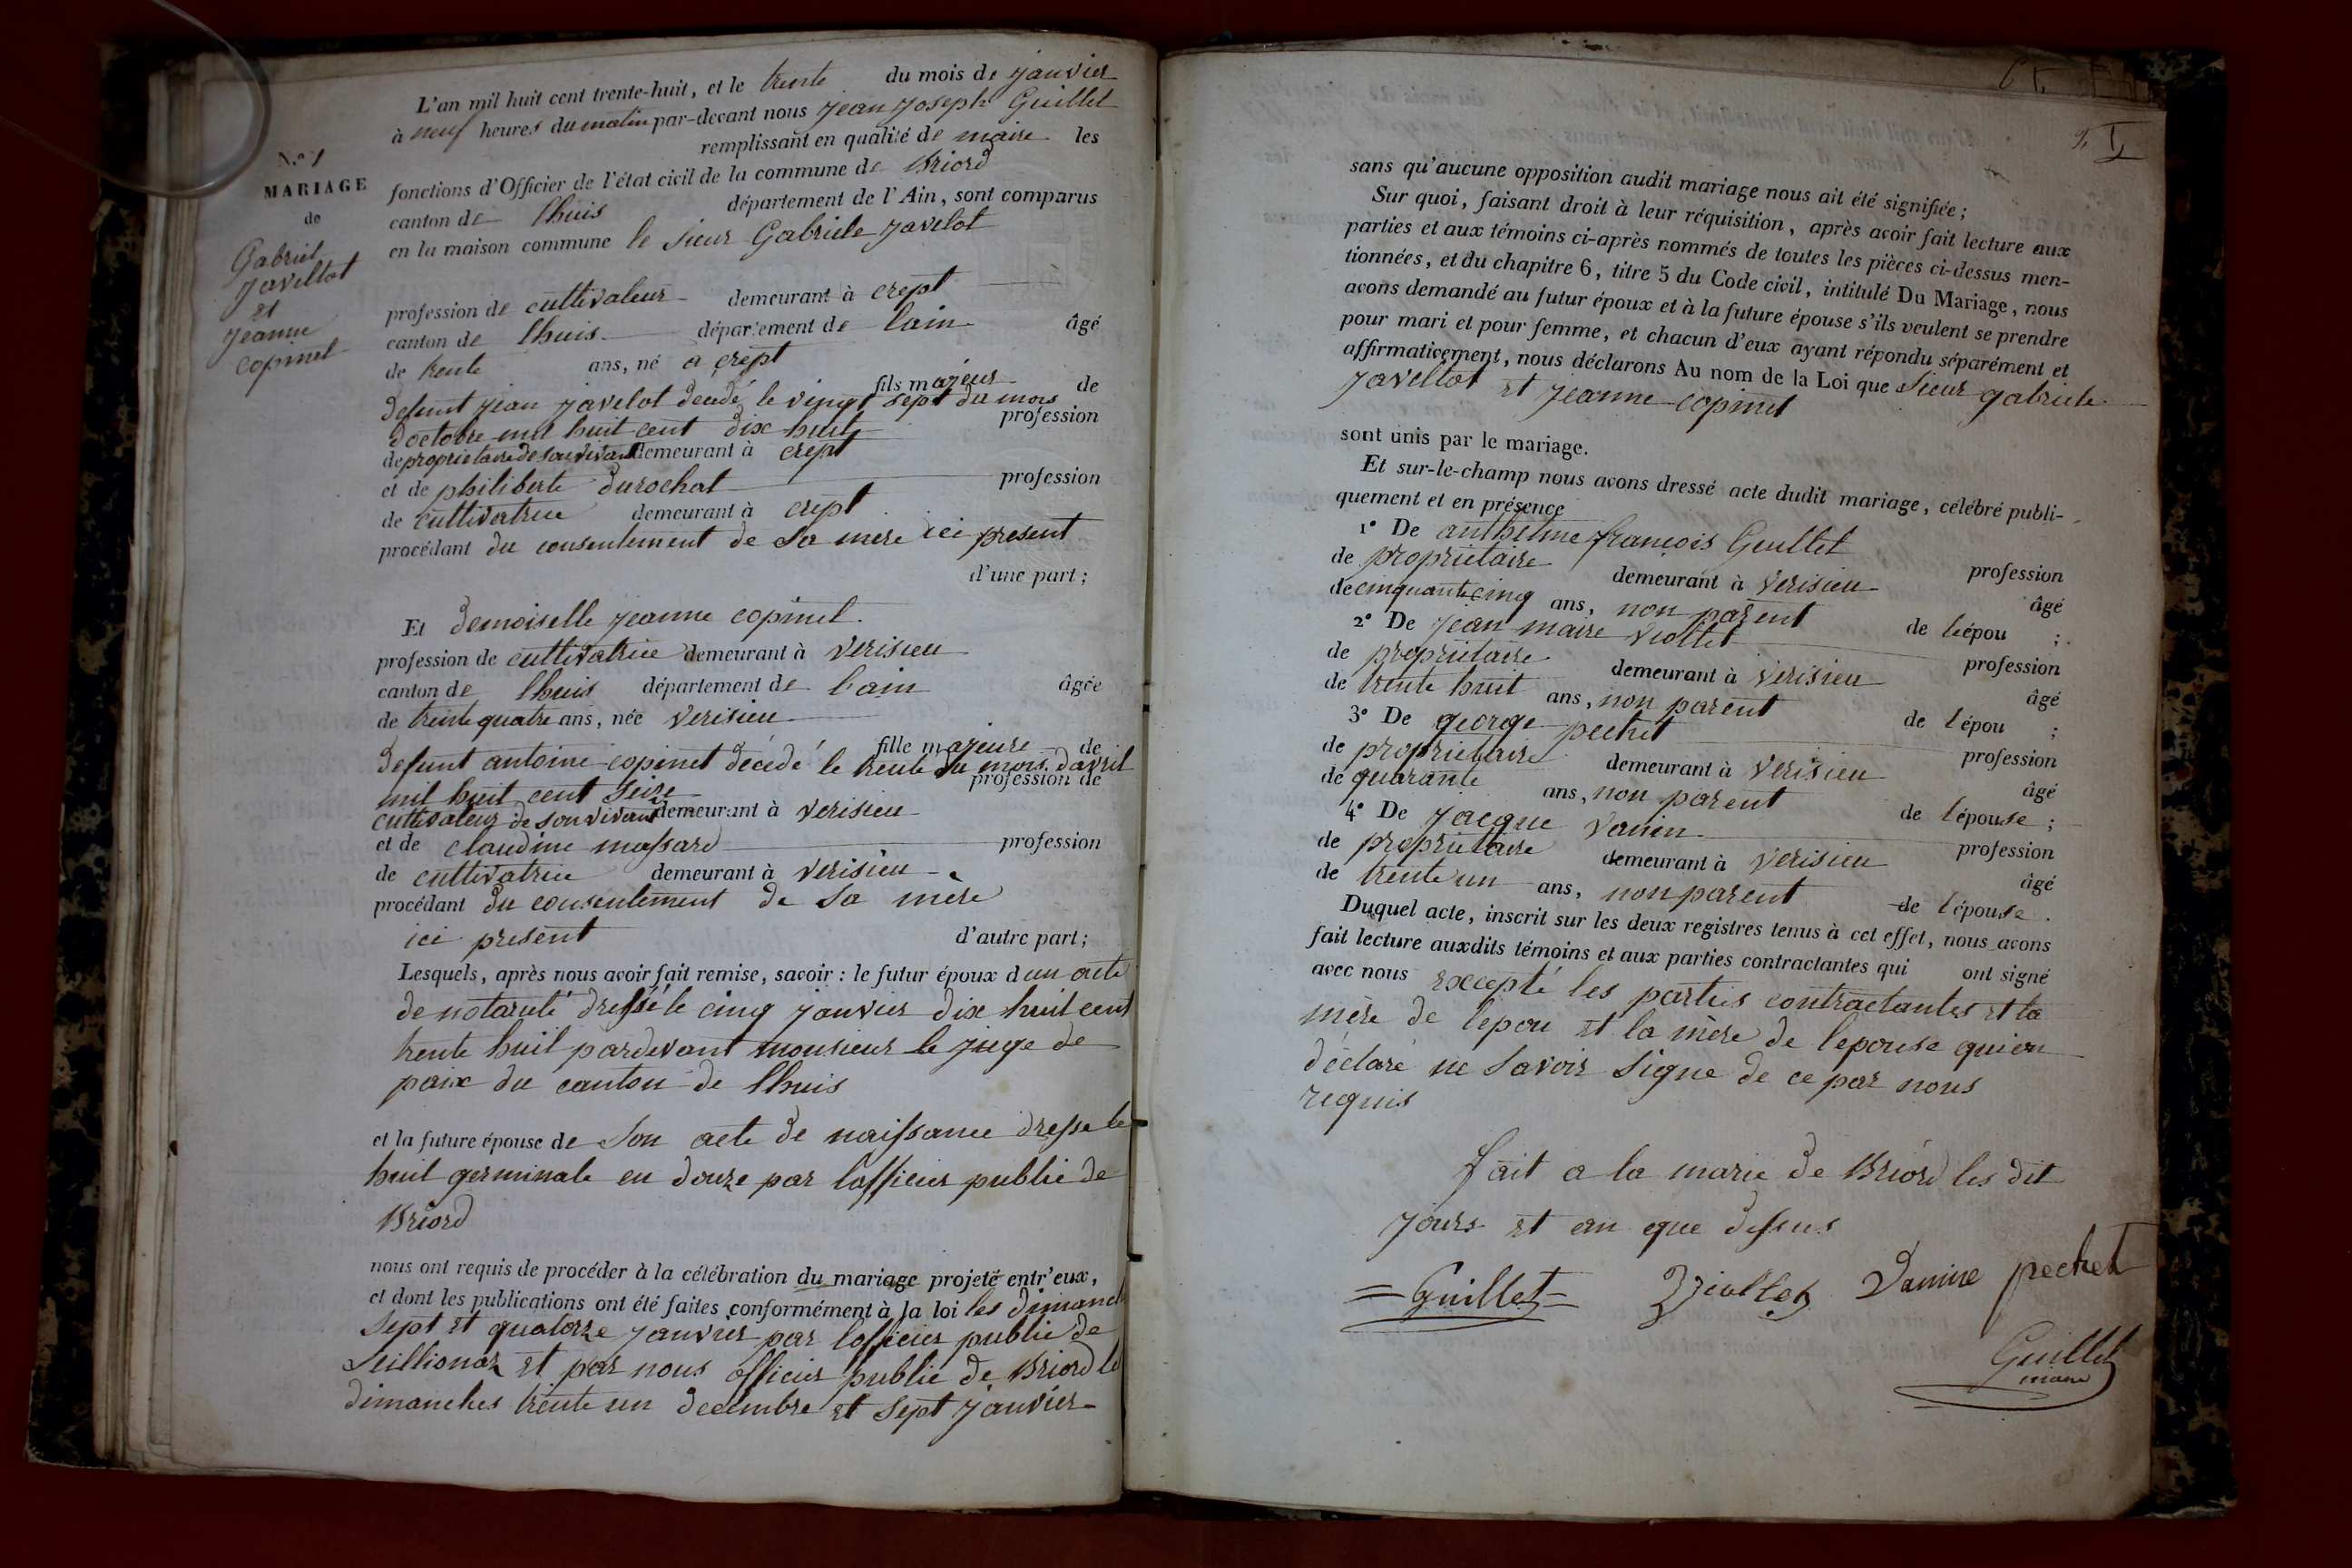 L'an mil huit cent trente-huit, et le trente du mois de janvier
à neuf heures du matin par-devant nous jean joseph Guillet
remplissant en qualité de maire les
N.° 1
MARIAGE
de
Gabriel
javellot
et
jeanne
copinet
fonctions d'Officier de l'état civil de la commune de Briord
canton de lhuis département de l'Ain, sont comparus
en la maison commune le sieur Gabriele javelot
profession de cultivateur demeurant à crept
canton de lhuis département de lain âgé
de trente ans, né a crept
fils majeur de
defunt jean javelot decedé le vingt sept du mois
doctobre mil huit cent dix huit profession
de propriétaire de son vivant demeurant à crept
et de philiberte durochat profession
de cultivatrice demeurant à crept
procédant du consentement de sa mere ici present
d'une part;
Et demoiselle jeanne copinet
profession de cultivatrice demeurant à verisieu
canton de lhuis département de lain âgée
de trente quatre ans, née verisieu
fille majeure de
defunt antoine copinet décedé le trente du mois davril
mil huit cent seize profession de
cultivateur de son vivant demeurant à verisieu
et de claudine massard profession
de cultivatrice demeurant à verisieu
procédant du consentement de sa mère
ici présent d'autre part;
Lesquels, après nous avoir fait remise, savoir : le futur époux d un acte
de notariété dressé le cinq janvier dix huit cent
trente huit pardevant monsieur le juge de
paix du canton de lhuis
et la future épouse de son acte de naissance dresse le
huit germinale en douze par lofficier public de
Briord
nous ont requis de procéder à la célébration du mariage projeté entr'eux,
et dont les publications ont été faites conformément à la loi les dimanch
sept et quatorze janvier par lofficier public de
Seillionaz et par nous officier public de Briord le
dimanches trente un decembre et sept janvier
sans qu'aucune opposition audit mariage nous ait été signifiée;
Sur quoi, faisant droit à leur réquisition, après avoir fait lecture aux
parties et aux témoins ci-après nommés de toutes les pièces ci-dessus men-
tionnées, et du chapitre 6, titre 5 du Code civil, intitulé Du Mariage, nous
avons demandé au futur époux et à la future épouse s'ils veulent se prendre
pour mari et pour femme, et chacun d'eux ayant répondu séparément et
affirmativement, nous déclarons Au nom de la Loi que sieur gabriele
javellot et jeanne copinet
sont unis par le mariage.
Et sur-le-champ nous avons dressé acte dudit mariage, célébré publi-
quement et en présence
1° De anthelme françois Guillet profession
de propriétaire demeurant à verisieu âgé
de cinquante cinq ans, non parent de lépou ;
2° De jean maire viollet profession
de propriétaire demeurant à verisieu âgé
de trente huit ans, non parent de lépou ;
3° De george pechet profession
de propriétaire demeurant à verisieu âgé
de quarante ans, non parent de lépouse ;
4° De jacque vanin profession
de propriétaire demeurant à verisieu âgé
de trente un ans, non parent de lépouse.
Duquel acte, inscrit sur les deux registres tenus à cet effet, nous avons
fait lecture auxdits témoins et aux parties contractantes qui ont signé
avec nous excepté les parties contractantes et la
mère de lepou et la mère de lepouse qui on
déclaré ne savoir signe de ce par nous
requis
fait a la marie de Briord les dit
jours et an que dessus
Guillet Viollet Vanine pechet
Guillet
maire